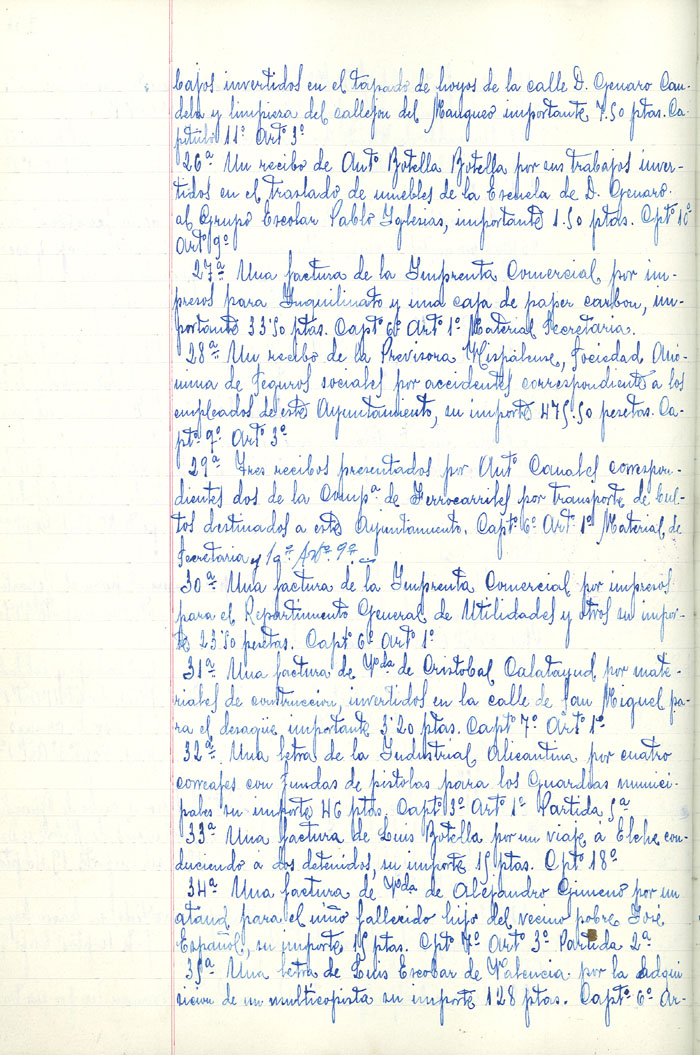 bajos invertidos en el tapado de hoyos de la calle D. Genaro Can-
dela y limpieza del callejon del importante 7.50 ptas. Ca-
pitulo 11º Artº 3º
26ª Un recibo de Antº Botella Botella por sus trabajos inver-
tidos en el traslado de muebles de la Escuela de D. Genaro
al Grupo Escolar Pablo Yglesias, importante 1.50 ptas. Cptº 10º
Artº 9º
27ª Una factura de la Imprenta Comercial por im-
presos para Inquilinato y una caja de paper carbon, im-
portante 33'50 ptas. Captº 6º Artº 1º Material Secretaria.
28ª Un recibo de la Previsora Hispalense, Sociedad Anó-
nima de Seguros sociales por accidentes correspondiente a los
empleados de este Ayuntamiento, su importe 475.50 pesetas. Ca-
ptº 9º Artº 3º
29ª Tres recibos presentados por Antº Canales correspon-
dientes dos de la Compª de Ferrocarriles por transporte de bul-
tos destinados a este Ayuntamiento. Captº 6º Artº 1º Material de
Secretaria y Artº 9º
30ª Una factura de la Imprenta Comercial por impresos
para el Repartimento General de Utilidades y otros su impor-
te 23'50 pesetas. Captº 6º Artº 1º
31ª Una factura de Vda de Cristobal Calatayud por mate-
riales de construccion, invertidos en la calle de San Miguel pa-
ra el desagüe, importante 3'20 ptas. Captº 7º Artº 1º
32ª Una letra de la Industrial Alicantina por cuatro
correajes con fundas de pistolas para los Guardias munici-
pales su importe 46 ptas. Captº 3º Artº 1º Partida 5ª
33ª Una factura de Luis Botella por un viaje á Elche con-
duciendo a dos detenidos, su importe 15 ptas. Cptº 18º
34ª Una factura de Vda de Alejandro Gimeno por un
ataud para el niño fallecido hijo del vecino pobre José
Español, su importe 15 ptas. Cptº 7º Artº 3º Partida 2ª
35ª Una letra de Luis Escobar de Valencia por la adqui
sicion de un multicopista su importe 128 ptas. Captº 6º Ar-